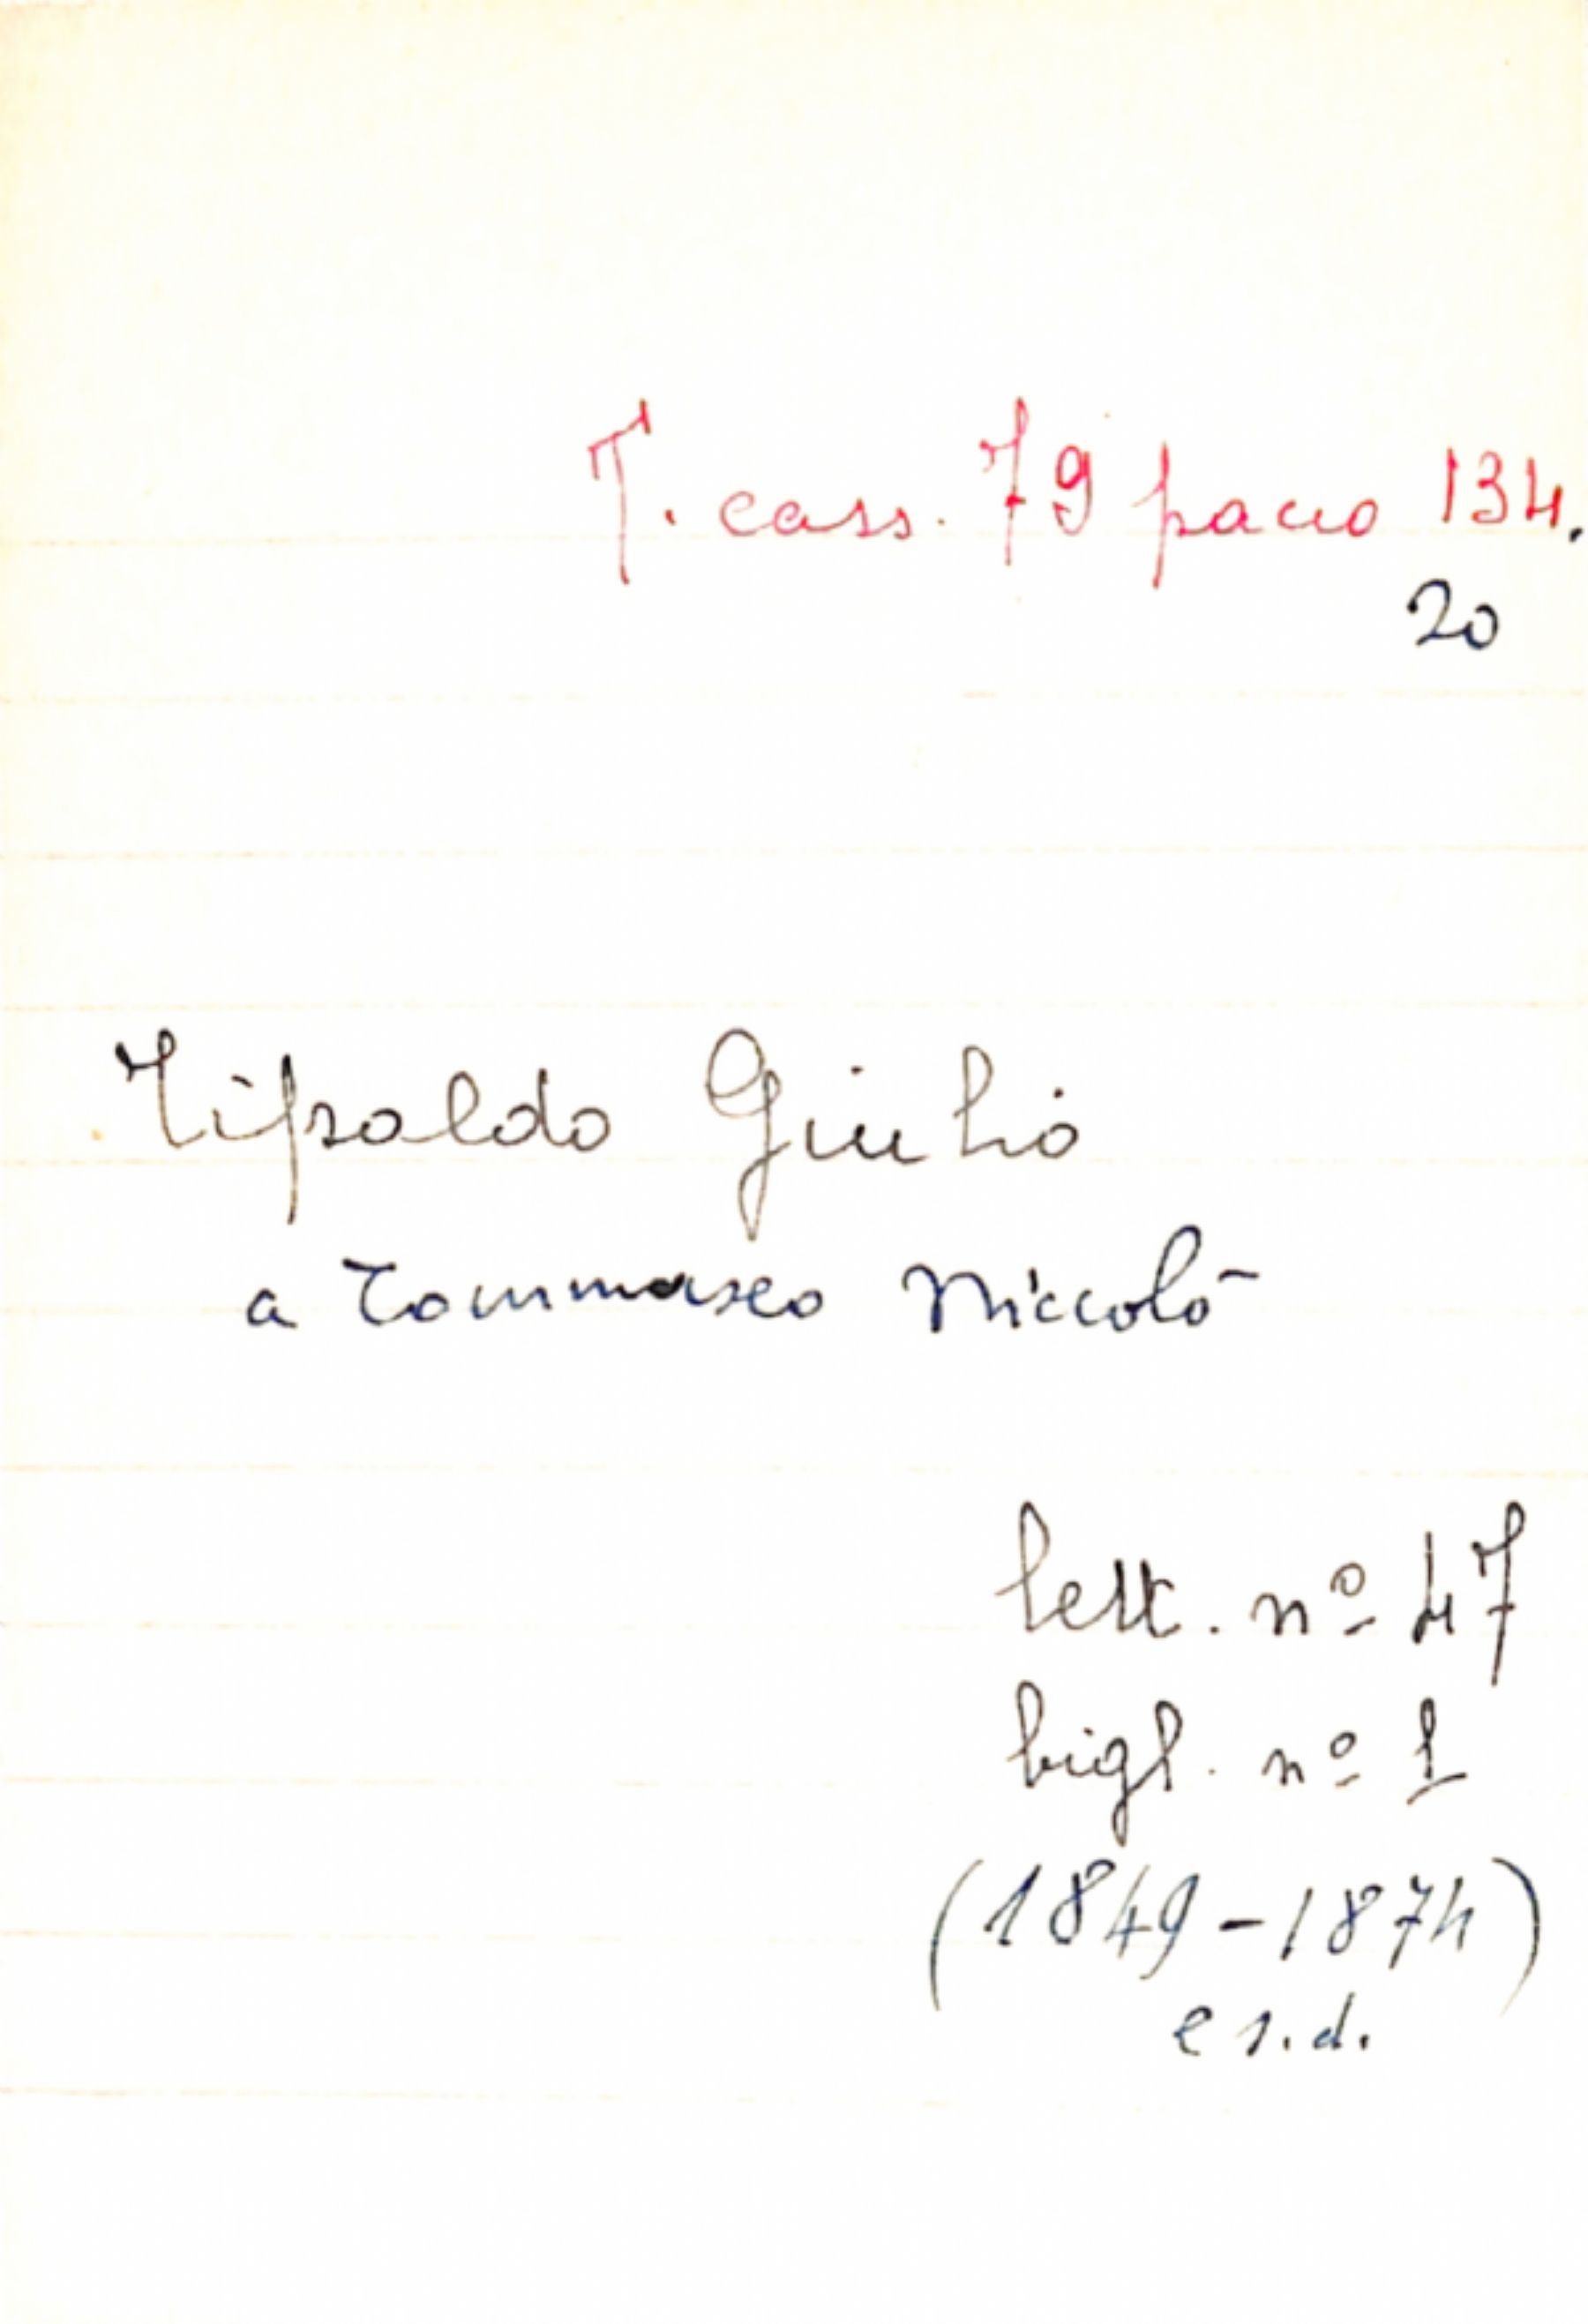 T. cass. 79 pacco 134.
20
Tipaldo Giulio
a Tommaseo Niccolò
lett. nº 47
bigl. nº 1
(1849-1874)
e s.d.